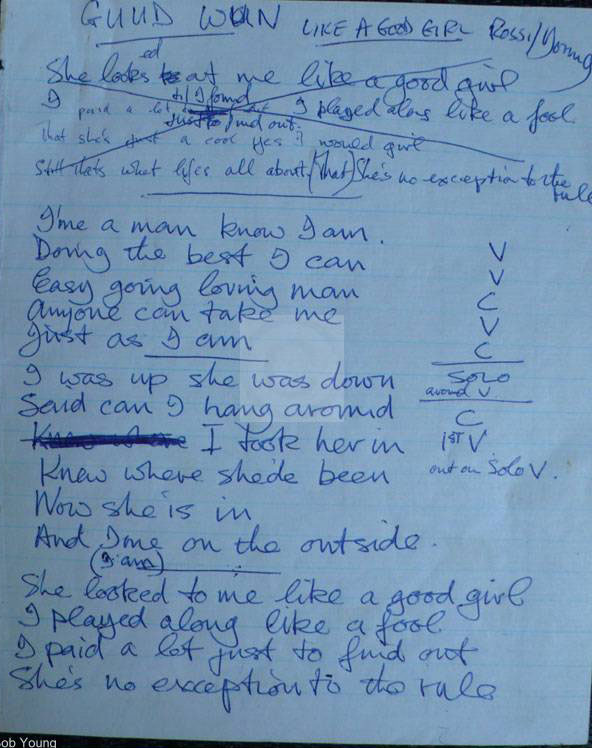 GUUD WUN LIKE A GOOD GIRL ROSSI/Young
She looks ed at me like a good girl
I paid a lot till I found I played along like a fool
just to find out
that she's just a cool yes I would girl
Still thats what lifes all about (that) She's no exception to the rule
I'me a man know I am.
Doing the best I can V
Easy going loving man V
Anyone can take me C
Just as I am V
C
I was up she was down SOLO
around V
Said can I hang around C
I took her in 1ST V
Knew where she'de been out on Solo V.
Now she is in
And I'me on the outside.
(I am)
She looked to me like a good girl
I played along like a fool
I paid a lot just to find out
She's no exception to the rule
ob Young